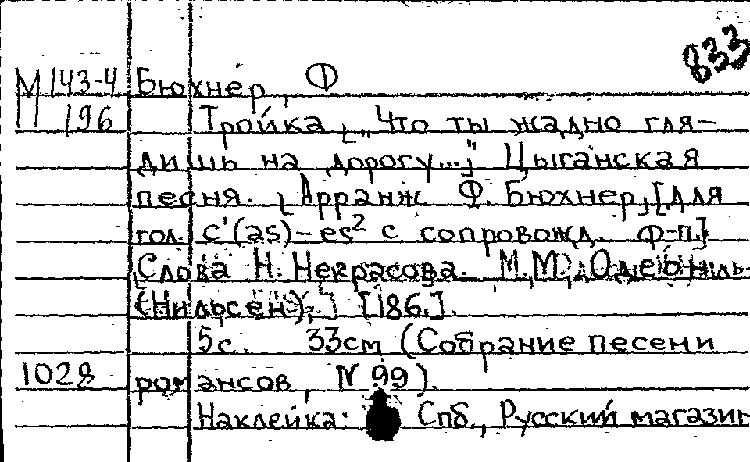 833
М 143-4 Бюхнер, Ф
196 Тройка [„Что ты жадно гля-
дишь на дорогу...“] Цыганская
песня. [Арранж Ф. Бюхнер,] [для
гол. c'(as)-es² с сопровожд. ф-п.]
Слова Н. Некрасова. М., М.,
(Нильсен), [186.].
5с. 33см (Собрание песен и
1028 романсов, N 99).
Наклейка: Спб., Русский магазин